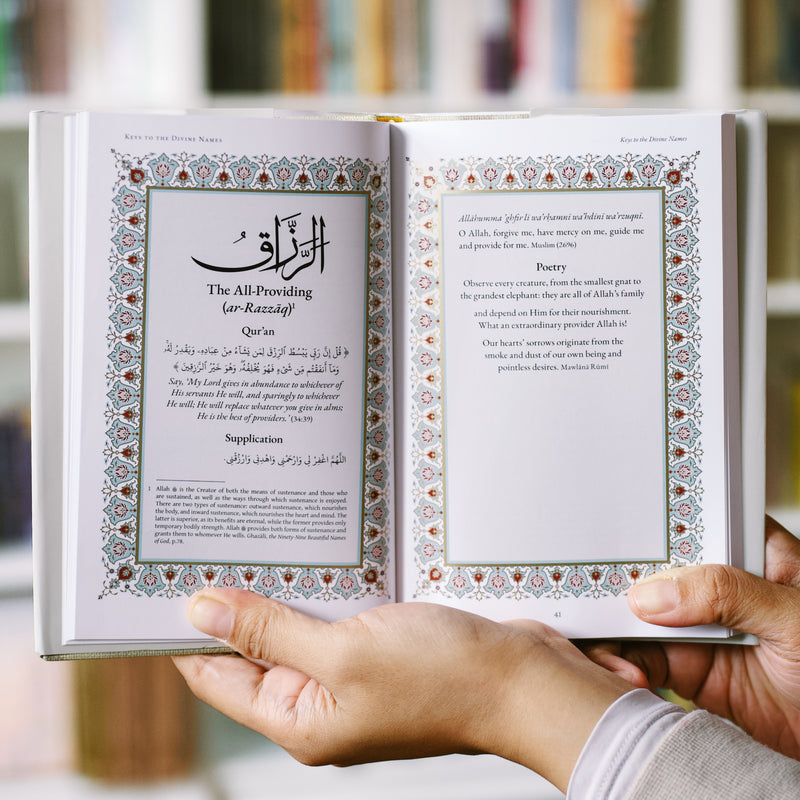 Keys to the Divine Names
الرَّزَّاقُ
The All-Providing
(ar-Razzāq)¹
Qur'an
﴿ قُلْ إِنَّ رَبِّي يَبْسُطُ ٱلرِّزْقَ لِمَن يَشَآءُ مِنْ عِبَادِهِۦ وَيَقْدِرُ لَهُۥ
وَمَآ أَنفَقْتُم مِّن شَىْءٍ فَهُوَ يُخْلِفُهُۥ وَهُوَ خَيْرُ ٱلرَّٰزِقِينَ ﴾
Say, 'My Lord gives in abundance to whichever of
His servants He will, and sparingly to whichever
He will; He will replace whatever you give in alms;
He is the best of providers.' (34:39)
Supplication
اللَّهُمَّ اغْفِرْ لِي وَارْحَمْنِي وَاهْدِنِي وَارْزُقْنِي.
1 Allah ﷻ is the Creator of both the means of sustenance and those who
are sustained, as well as the ways through which sustenance is enjoyed.
There are two types of sustenance: outward sustenance, which nourishes
the body, and inward sustenance, which nourishes the heart and mind. The
latter is superior, as its benefits are eternal, while the former provides only
temporary bodily strength. Allah ﷻ provides both forms of sustenance and
grants them to whomever He wills. Ghazālī, the Ninety-Nine Beautiful Names
of God, p.78.
Keys to the Divine Names
Allāhumma 'ghfir li wa'rḥamni wa'hdini wa'rzuqni.
O Allah, forgive me, have mercy on me, guide me
and provide for me. Muslim (2696)
Poetry
Observe every creature, from the smallest gnat to
the grandest elephant: they are all of Allah's family
and depend on Him for their nourishment.
What an extraordinary provider Allah is!
Our hearts' sorrows originate from the
smoke and dust of our own being and
pointless desires. Mawlānā Rūmī
41